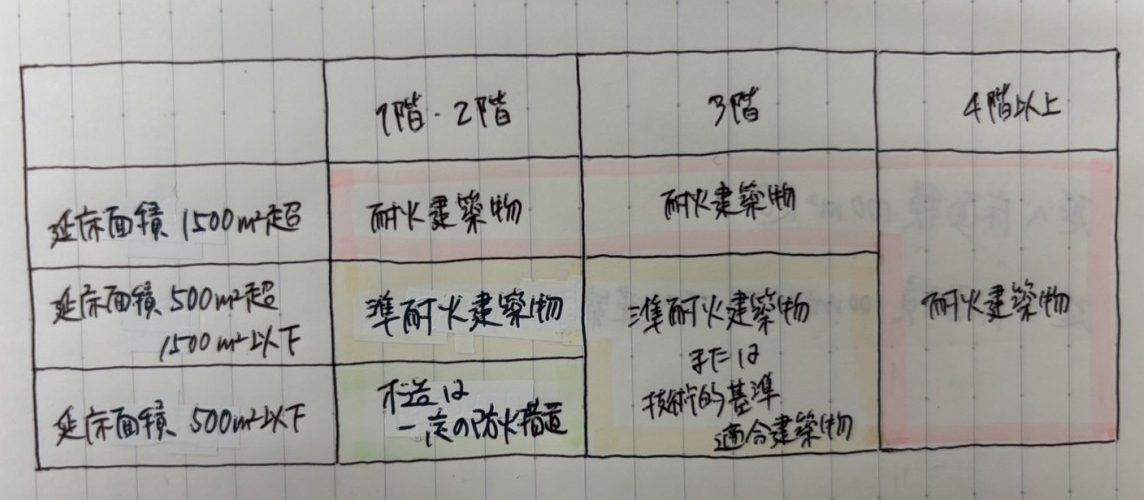 1階・2階
3階
4階以上
延床面積 1500m²超
耐火建築物
耐火建築物
延床面積 500m²超
1500m²以下
準耐火建築物
準耐火建築物
または
技術的基準
適合建築物
耐火建築物
延床面積 500m²以下
木造は
一定の防火措置